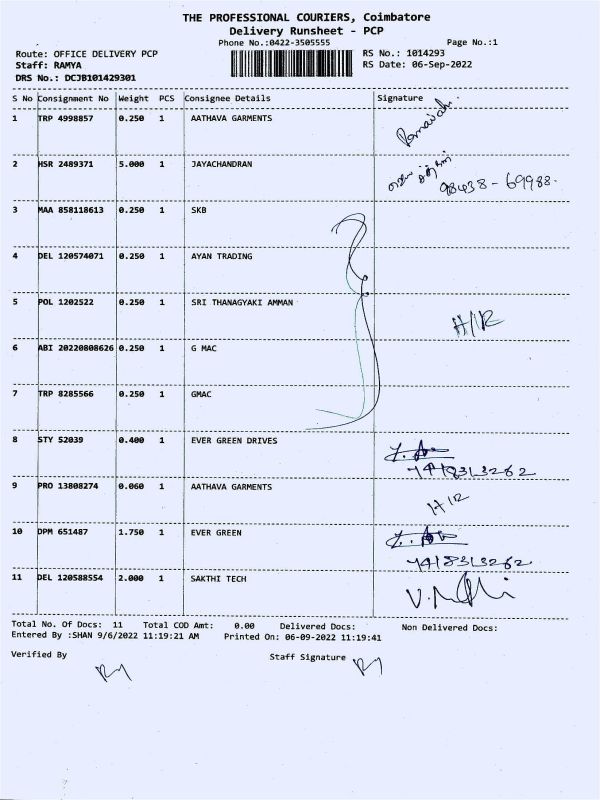 THE PROFESSIONAL COURIERS, Coimbatore
Delivery Runsheet - PCP
Phone No.:0422-3505555 Page No.:1
Route: OFFICE DELIVERY PCP RS No.: 1014293
Staff: RAMYA RS Date: 06-Sep-2022
DRS No.: DCJB101429301
S No Consignment No Weight PCS Consignee Details Signature
1 TRP 4998857 0.250 1 AATHAVA GARMENTS
2 HSR 2489371 5.000 1 JAYACHANDRAN 98438-69988.
3 MAA 858118613 0.250 1 SKB
4 DEL 120574071 0.250 1 AYAN TRADING
5 POL 1202522 0.250 1 SRI THANAGYAKI AMMAN H/R
6 ABI 20220808626 0.250 1 G MAC
7 TRP 8285566 0.250 1 GMAC
8 STY 52039 0.400 1 EVER GREEN DRIVES
7418313262
9 PRO 13808274 0.060 1 AATHAVA GARMENTS H/R
10 DPM 651487 1.750 1 EVER GREEN
7418313262
11 DEL 120588554 2.000 1 SAKTHI TECH
Total No. Of Docs: 11 Total COD Amt: 0.00 Delivered Docs: Non Delivered Docs:
Entered By :SHAN 9/6/2022 11:19:21 AM Printed On: 06-09-2022 11:19:41
Verified By Staff Signature